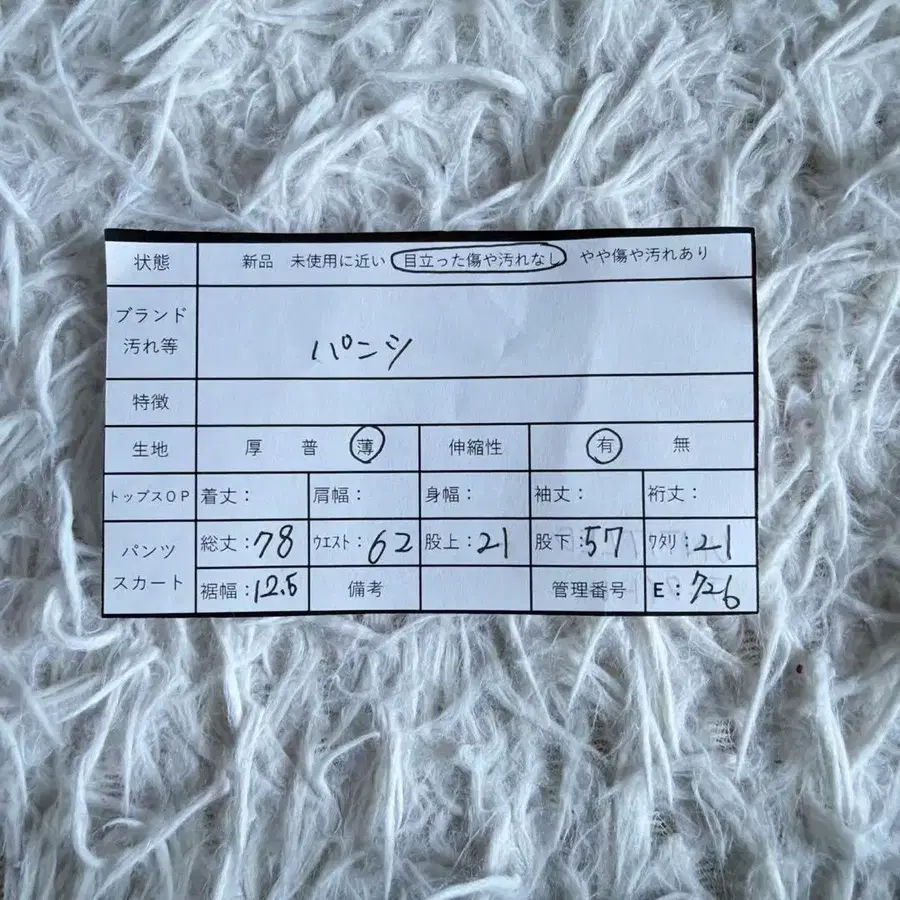 状態 新品 未使用に近い 目立った傷や汚れなし やや傷や汚れあり
ブランド
汚れ等 パンツ
特徴
生地 厚 普 薄 伸縮性 有 無
トップスOP 着丈: 肩幅: 身幅: 袖丈: 裄丈:
パンツ
スカート
総丈:78 ウエスト:62 股上:21 股下:57 ワタリ:21
裾幅:12.5 備考 管理番号 E:726